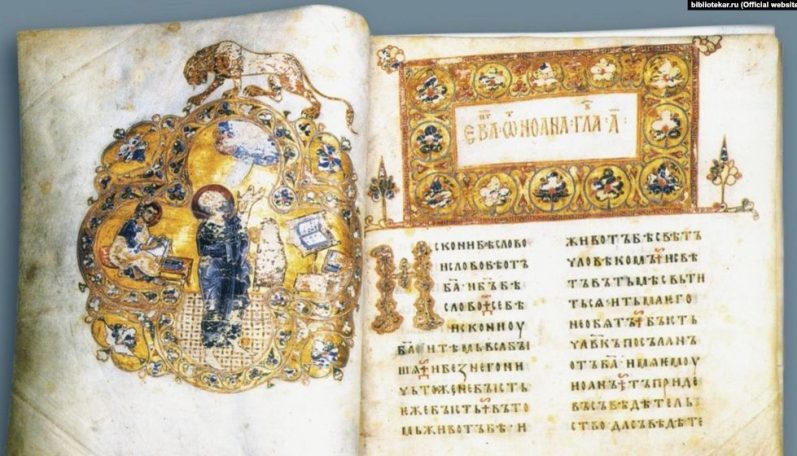 bibliotekar.ru (Official website
ЕВА҃·Ѿ ИОАНА·ГЛА·А҃·
ИСКОНИБѢСЛОВО
ИСЛОВОБѢОТЪ
БА҃·ИБЪ҃БѢ
СЛОВО·СЕБѢ
ИСКОНИОУ
БА҃·ИТѢМЬВЬСꙖБЫ
ШѦ·ИБЕЖНЕГОНИ
ЧЬТОЖЕНЕБЫСТЬ
ѤЖЕБЫСТЬ·ВЪТО
МЬЖИВОТЪБѢ·И
ЖИВОТЪБѢСВѢТЪ
ЧЛОВѢКОМЪ·ИСВѢ
ТЪВЪТЬМѢСВЬТИ
ТЬСѦ·ИТЬМАѤГО
НЕОБѨТЪ·БЫСТЬ
ЧЛВ҃КЪПОСЪЛАНЪ
ОТЪБА҃·ИМѦѤМОУ
ИОАНЪ·ТЪПРИДЕ
ВЪСЪВѢДѢТЕЛЬ
СТВО·ДАСЪВѢДѢТЕ